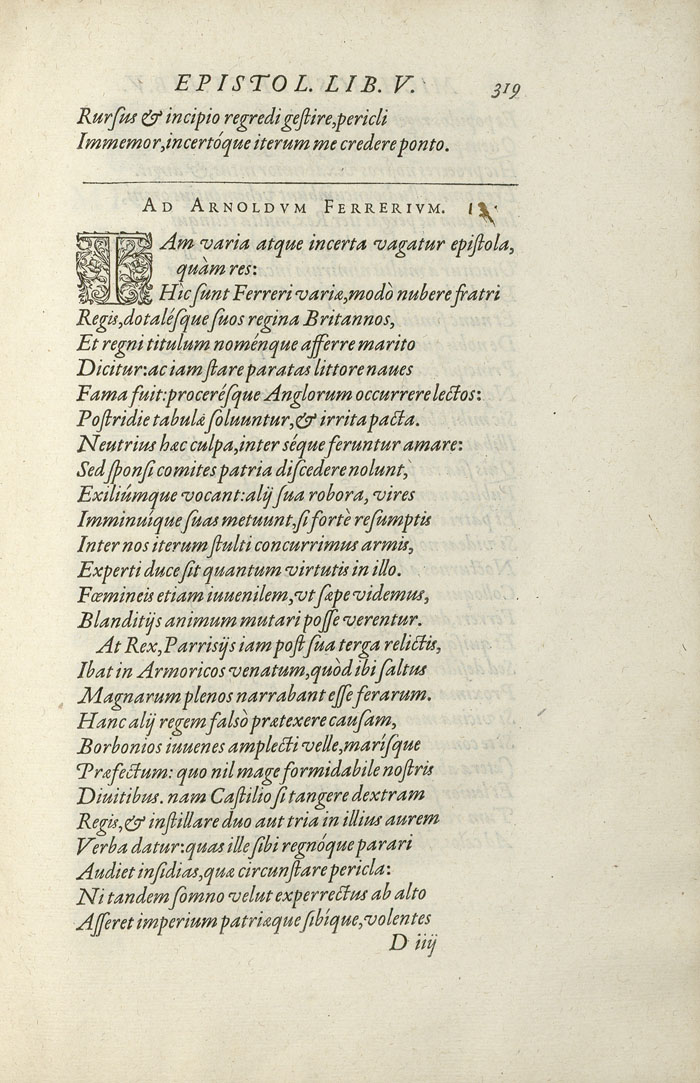 EPISTOL. LIB. V. 319
Rurſus & incipio regredi geſtire, pericli
Immemor, incertóque iterum me credere ponto.
AD ARNOLDVM FERRERIVM.
TAm varia atque incerta vagatur epiſtola,
quàm res:
Hîc ſunt Ferreri variæ, modò nubere fratri
Regis, dotaléſque ſuos regina Britannos,
Et regni titulum noménque afferre marito
Dicitur: ac iam ſtare paratas littore naues
Fama fuit: proceréſque Anglorum occurrere lectos:
Poſtridie tabulæ ſoluuntur, & irrita pacta.
Neutrius hæc culpa, inter ſéque feruntur amare:
Sed ſponſi comites patria diſcedere nolunt,
Exiliúmque vocant: alij ſua robora, vires
Imminuíque ſuas metuunt, ſi fortè reſumptis
Inter nos iterum ſtulti concurrimus armis,
Experti duce ſit quantum virtutis in illo.
Fœmineis etiam iuuenilem, vt ſæpe videmus,
Blanditijs animum mutari poſſe verentur.
At Rex, Parrisijs iam poſt ſua terga relictis,
Ibat in Armoricos venatum, quòd ibi ſaltus
Magnarum plenos narrabant eſſe ferarum.
Hanc alij regem falsò prætexere cauſam,
Borbonios iuuenes amplecti velle, maríſque
Præfectum: quo nil mage formidabile noſtris
Diuitibus. nam Caſtilio ſi tangere dextram
Regis, & inſtillare duo aut tria in illius aurem
Verba datur: quas ille ſibi regnóque parari
Audiet inſidias, quæ circunſtare pericla:
Ni tandem ſomno velut experrectus ab alto
Aſſeret imperium patriæque ſibíque, volentes
D iiij